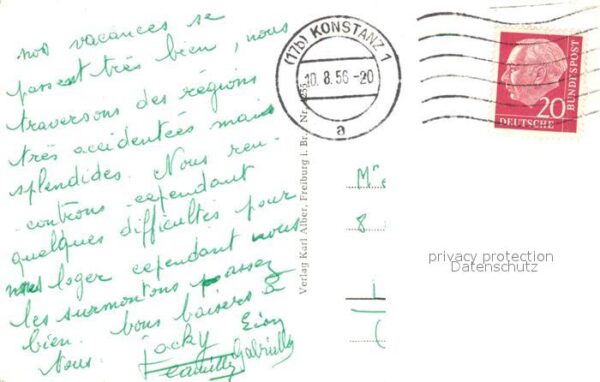 nos vacances se
passent très bien, nous
traversons des régions
très accidentées mais
splendides. Nous ren-
controns cependant
quelques difficultés pour
nous loger cependant nous
les surmontons assez
bien. bons baisers à
Vous. Jacky
Camille Gabrielle
(17b) KONSTANZ 1
10.8.56-20
a
20
DEUTSCHE
BUNDESPOST
Verlag Karl Alber, Freiburg i. Br. Nr.
M
8
privacy protection
Datenschutz